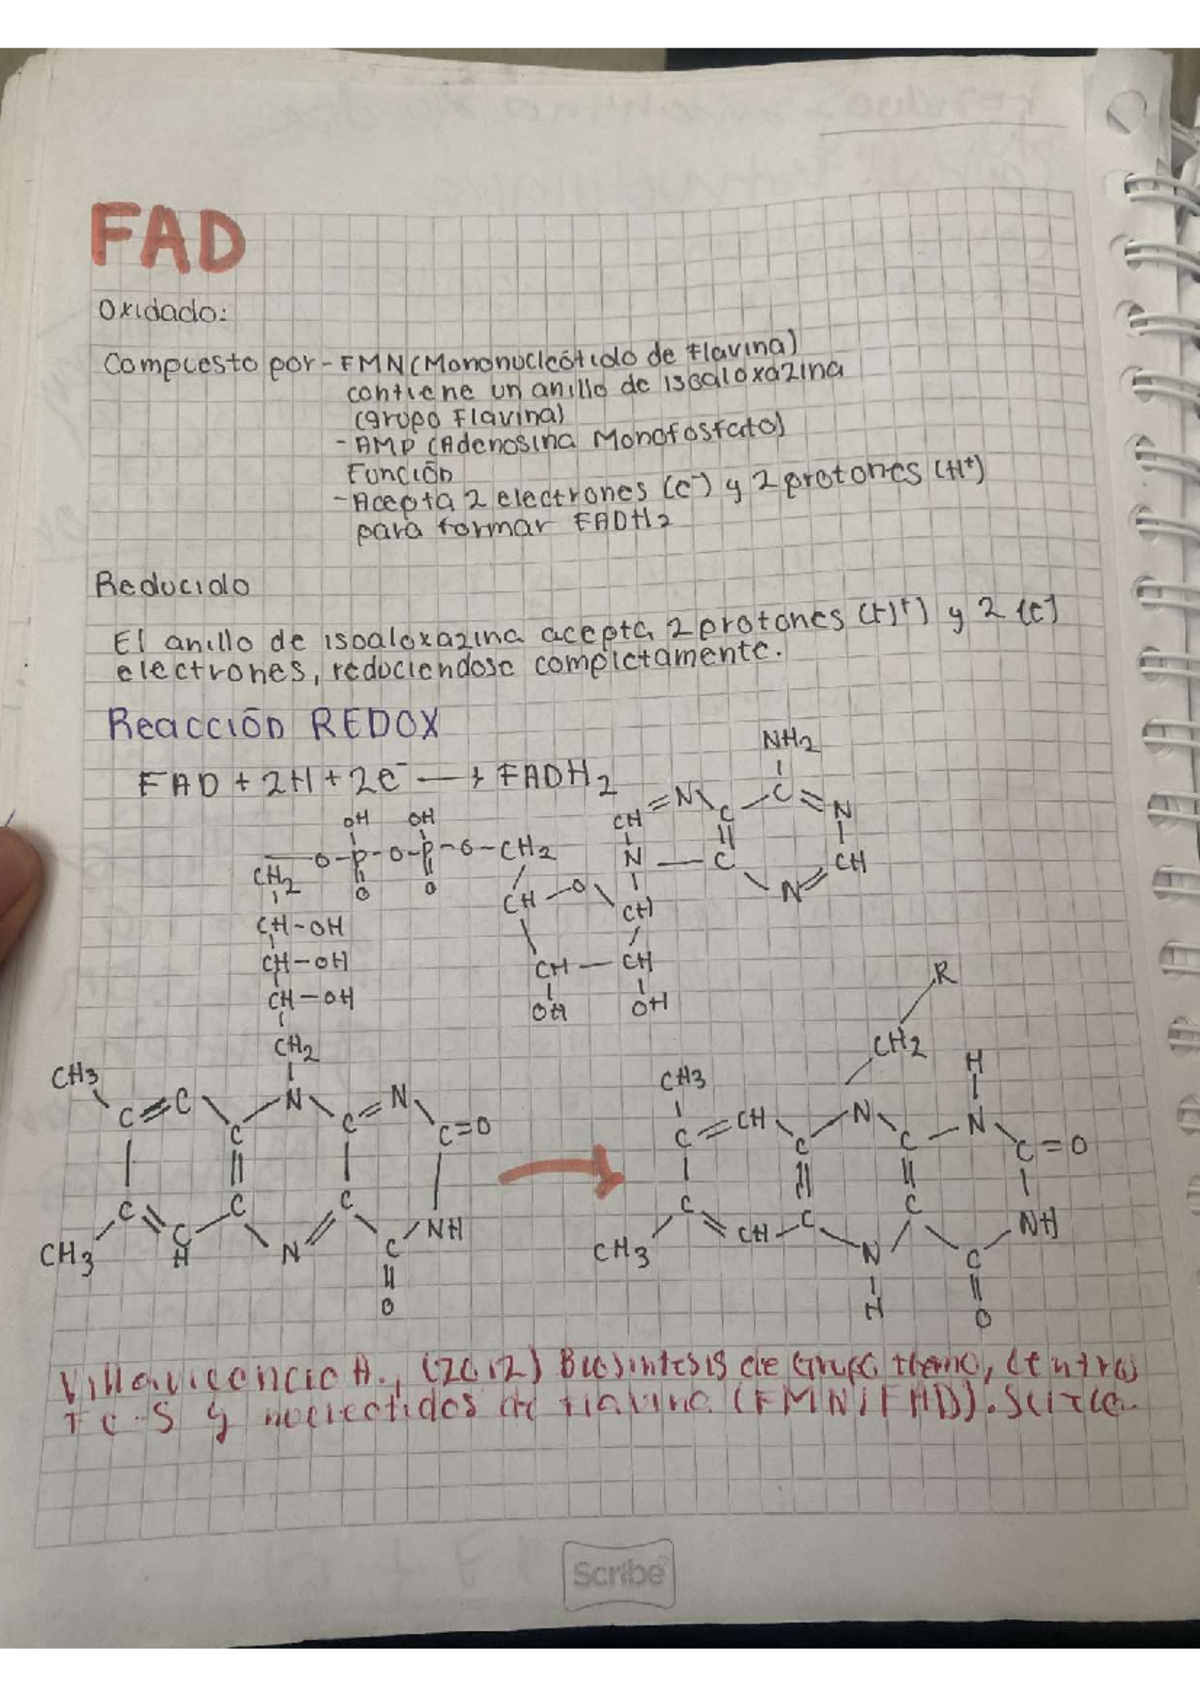 FAD
Oxidado:
Compuesto por - FMN (Mononucleótido de Flavina)
contiene un anillo de isoaloxazina
(grupo Flavina)
- AMP (Adenosina Monofosfato)
Función
- Acepta 2 electrones (e⁻) y 2 protones (H⁺)
para formar FADH2
Reducido
El anillo de isoaloxazina acepta 2 protones (H⁺) y 2 (e⁻)
electrones, reduciendose completamente.
Reacción REDOX
FAD + 2H + 2e⁻ → FADH2
NH2
CH = N C C N
OH OH
C
CH2 O-P-O-P-O-CH2 N C CH
O O N
CH O CH
CH-OH
CH-OH CH CH
CH-OH OH OH
CH2
R
CH2
H
CH3 CH3
C=C N C=N C=O
C C
C C C NH
CH3 C H N C
O
C=CH N C N C=O
C C
C C C NH
CH3 CH N C
H O
Villavicencio A., (2012) Biosintesis de Grupo Hemo, Centros
Fe-S y nucleotidos de flavina (FMN/FAD).
Scribe